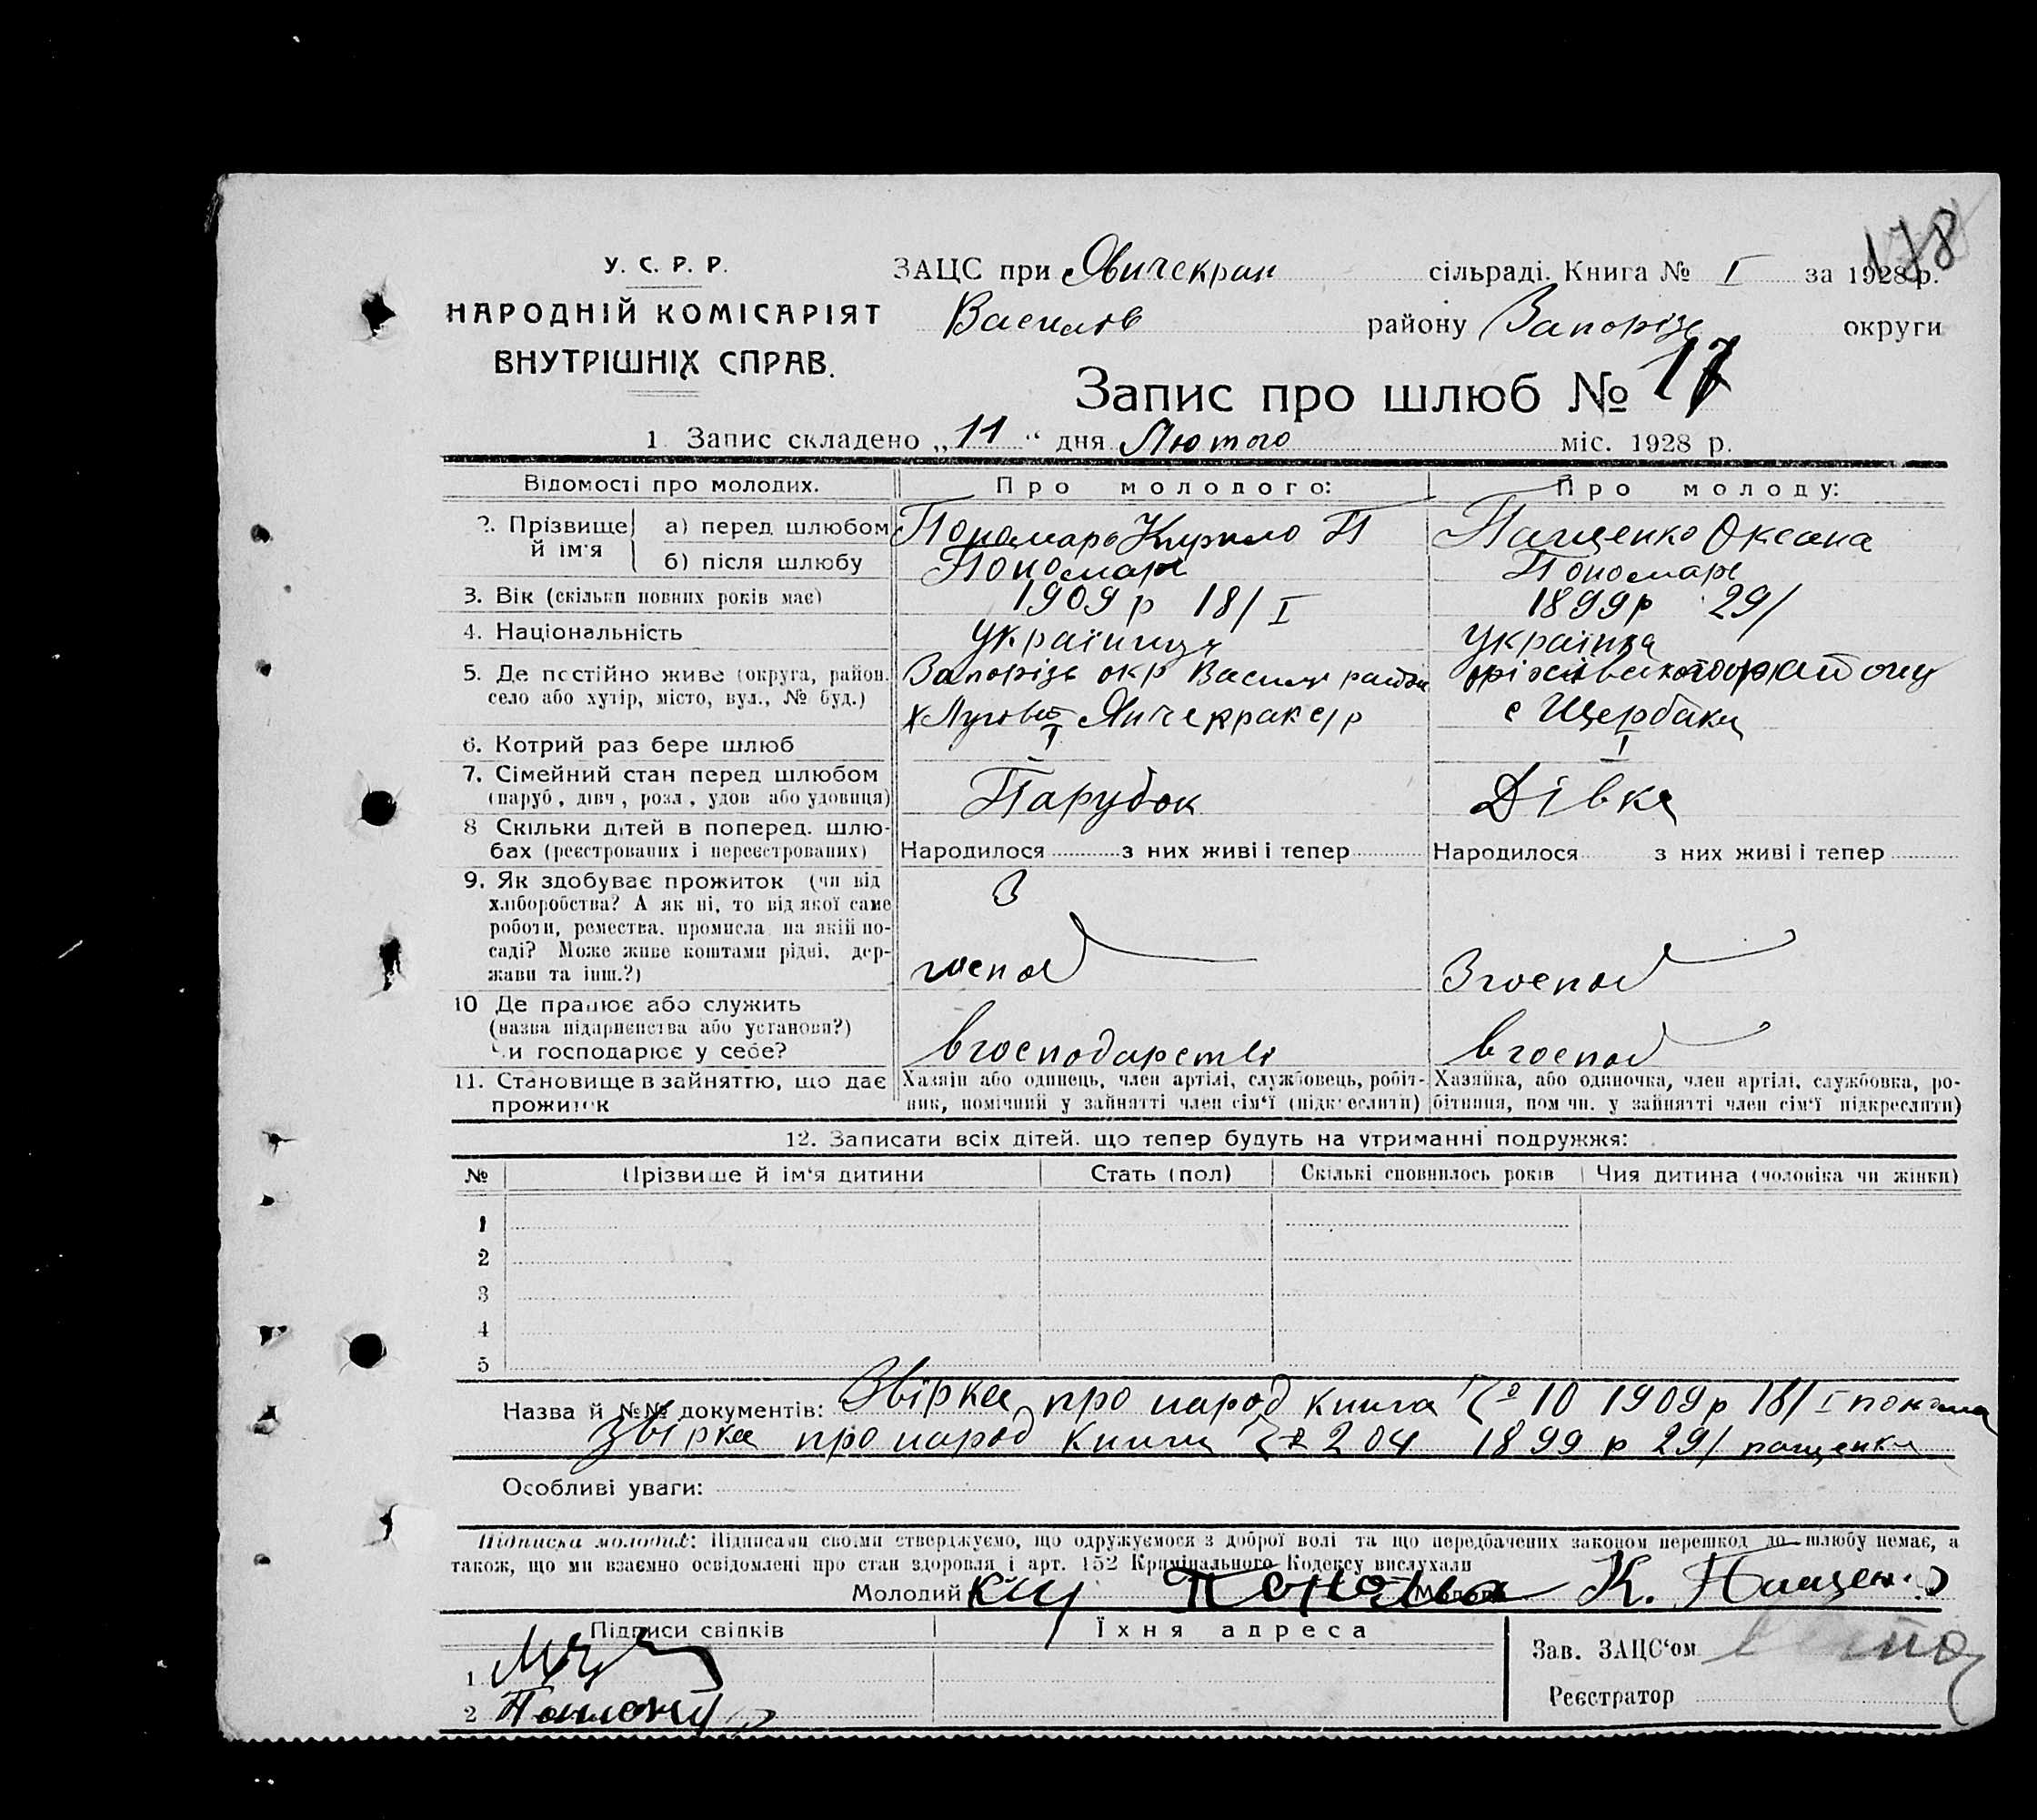 178
У. С. Р. Р.
НАРОДНІЙ КОМІСАРІЯТ
ВНУТРІШНІХ СПРАВ.
ЗАЦС при Янчекрак сільраді. Книга № I за 1928 р.
Василів району Запорізь округи
Запис про шлюб № 17
1. Запис складено „11“ дня Лютого міс. 1928 р.
Відомості про молодих. Про молодого: Про молоду:
2. Прізвище й ім'я а) перед шлюбом Пономарь Кирило П Пащенко Оксана
б) після шлюбу Пономарь Пономарь
3. Вік (скільки повних років має) 1909 р 18/I 1899 р 29/
4. Національність Українець Українка
5. Де постійно живе (округа, район, Запорізь окр Васил район Оріхівського району
село або хутір, місто, вул., № буд.) х Лугове Янчекрак с/р с Щербаки
6. Котрий раз бере шлюб I I
7. Сімейний стан перед шлюбом
(паруб, дівч, розл, удов або удовиця) Парубок Дівка
8 Скільки дітей в поперед. шлю-
бах (реєстрованих і нереєстрованих) Народилося з них живі і тепер Народилося з них живі і тепер
9. Як здобуває прожиток (чи від З
хліборобства? А як ні, то від якої саме
роботи, ремества, промисла на якій по-
саді? Може живе коштами рідні, дер-
жави та інш.?) господ З господ
10 Де працює або служить
(назва підприємства або установи?)
Чи господарює у себе? в господарстві в господ
11. Становище в зайняттю, що дає Хазяїн або одинець, член артілі, службовець, робіт- Хазяйка, або одиночка, член артілі, службовка, ро-
прожиток ник, помічний у зайнятті член сім'ї (підкреслити) бітниця, помічн. у зайнятті член сім'ї підкреслити)
12. Записати всіх дітей, що тепер будуть на утриманні подружжя:
№ Прізвише й ім'я дитини Стать (пол) Скількі сповнилось років Чия дитина (чоловіка чи жінки)
1
2
3
4
5
Назва й №№ документів: Звірка про народ книга 10 1909 р 18/I
Звірка про народ книги 204 1899 р 29/ пащенки
Особливі уваги:
Підписка молодих: Підписами своїми стверджуємо, що одружуємося з доброї волі та що передбачених законом перешкод до шлюбу немає, а
також, що ми взаємно освідомлені про стан здоровля і арт. 152 Крімінального Кодексу вислухали
Молодий К. Пащен
Підписи свідків Їхня адреса
Зав. ЗАЦС'ом
1
Реєстратор
2